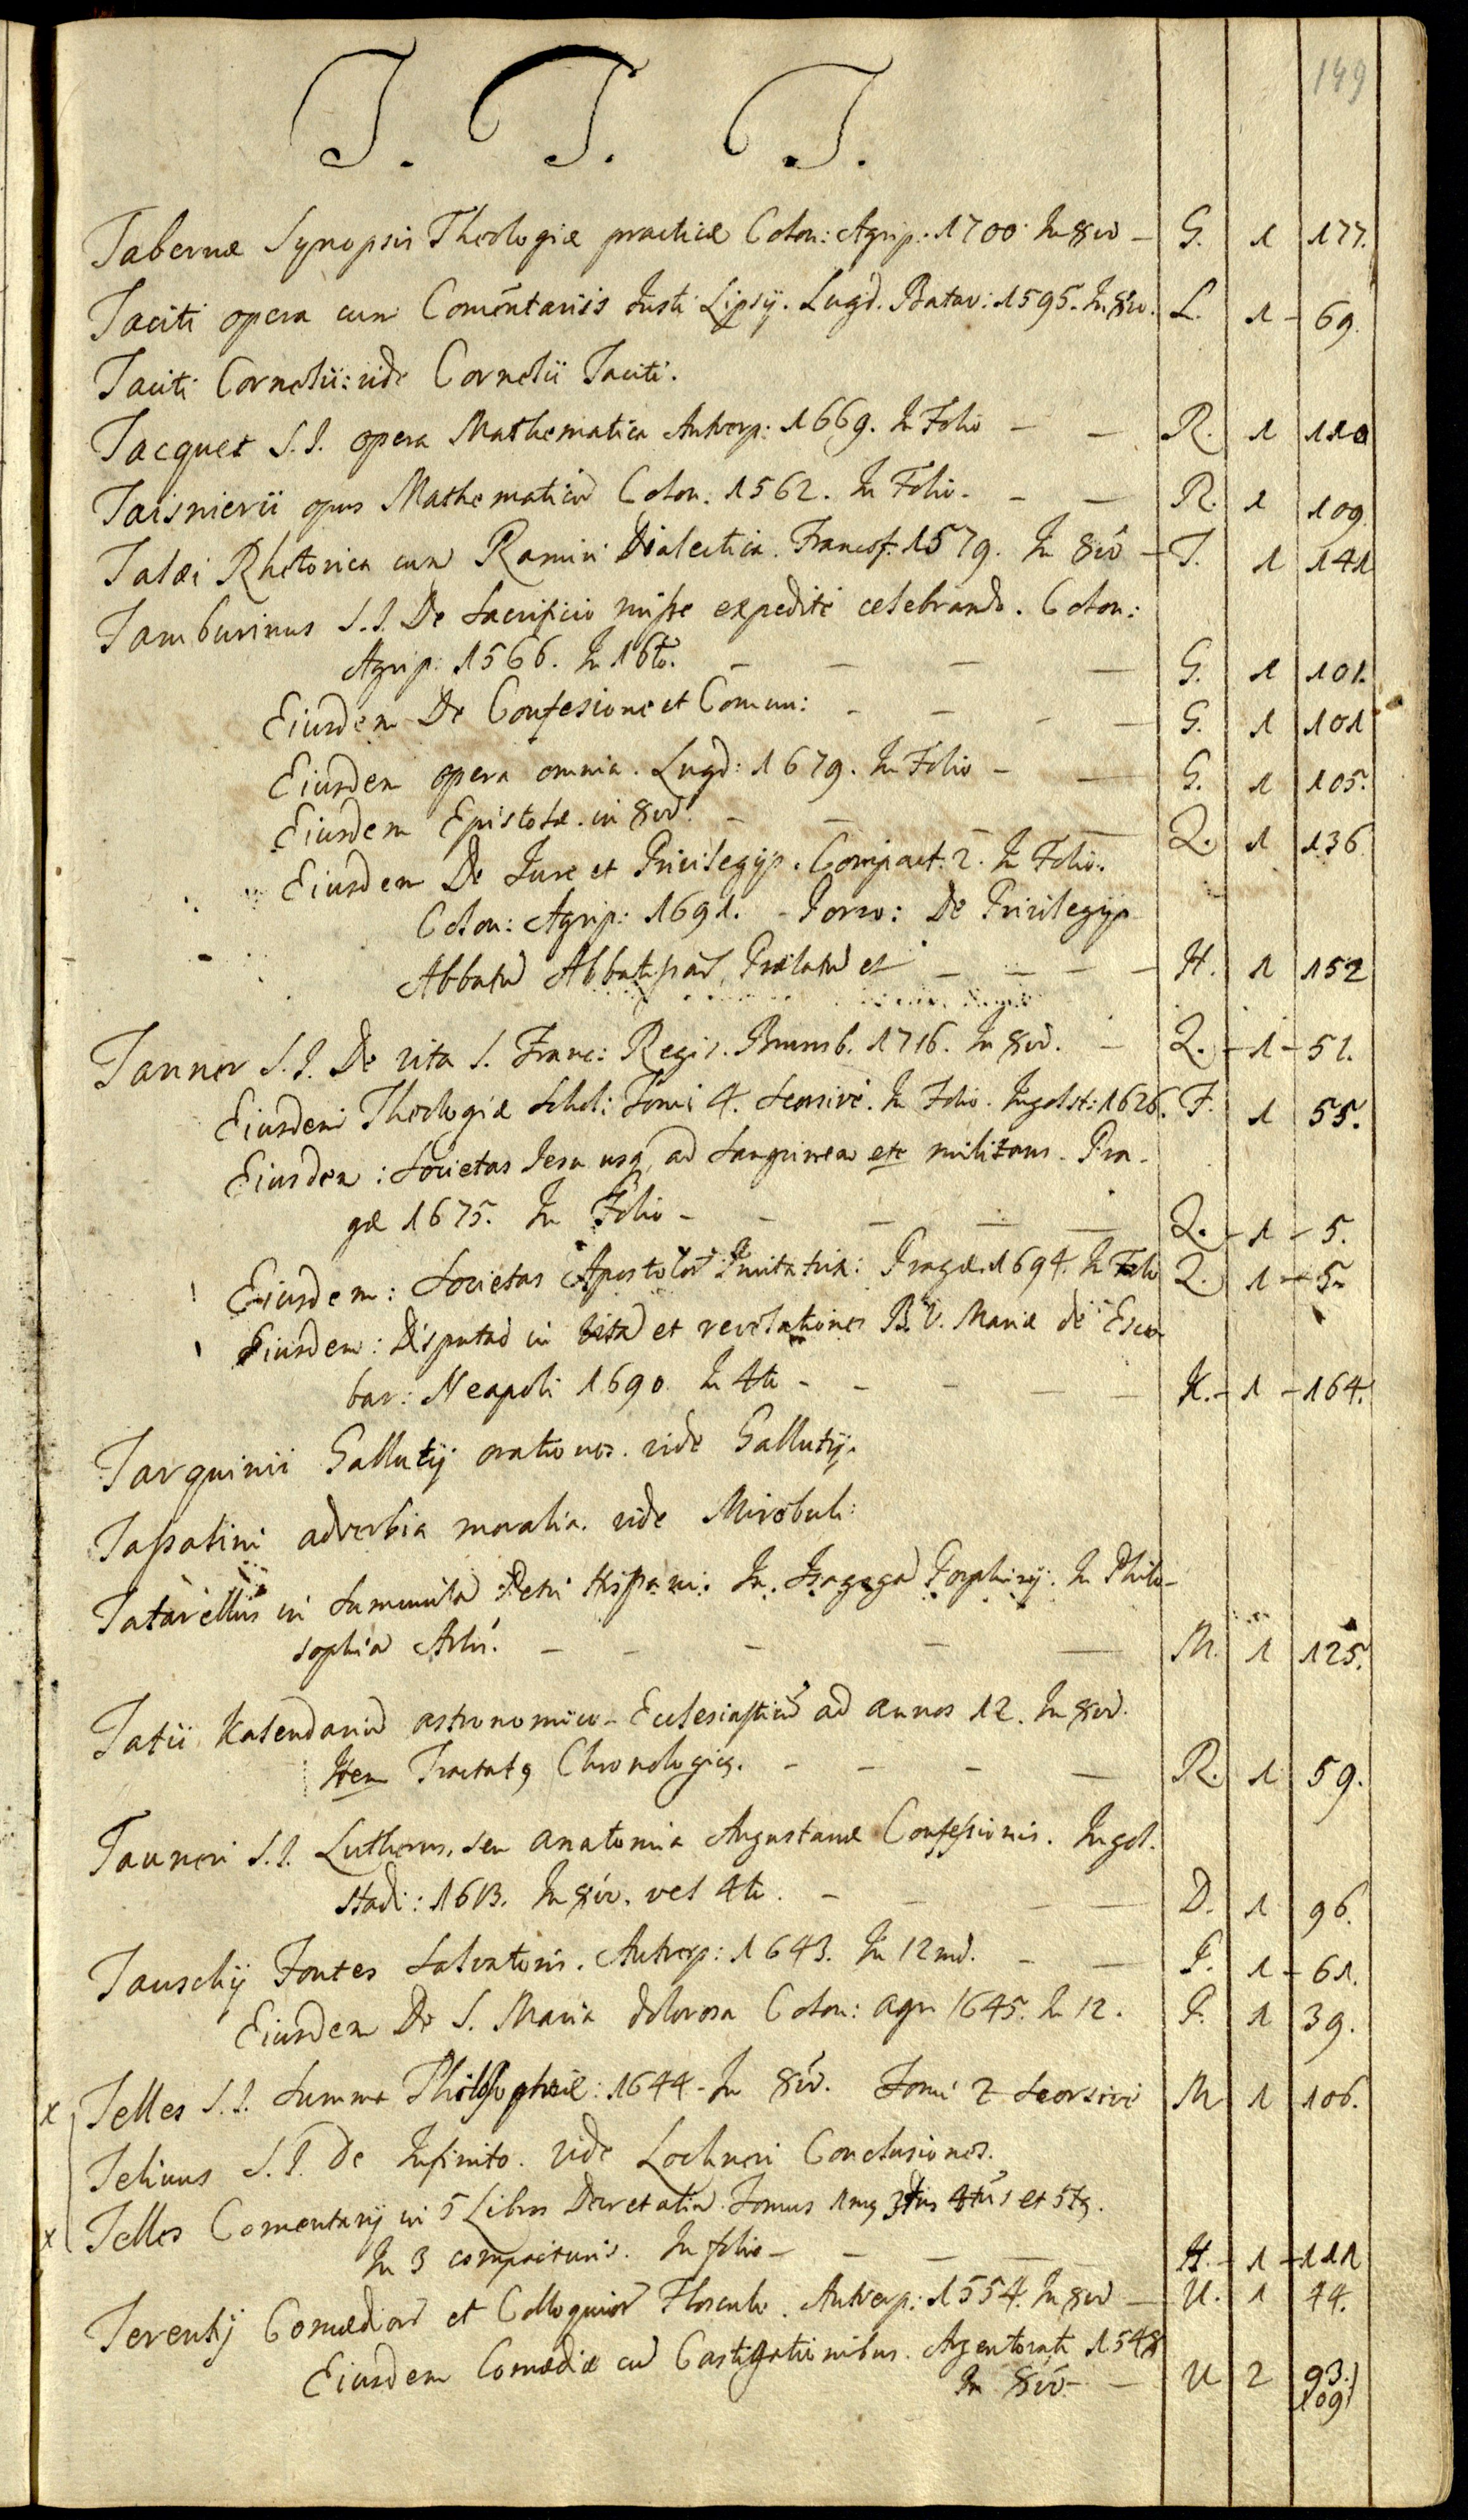 149
T. T. T.
Tabernæ Synopsis Theologiæ practicæ Colon: Agrip: 1700. In 8vo – G. 1 177.
Taciti opera cum Comentariis Justi Lipsij. Lugd. Batav: 1595. In 8vo. L. 1 – 69.
Taciti Cornelii: vide Cornelii Taciti.
Tacquet S.J. opera Mathematica Antverp: 1669. In Folio – – R. 1 110
Taisnierii opus Mathematicũ Colon. 1562. In Folio. – – R. 1 109.
Talæi Rhetorica cum Ramiri Dialectica. Francof. 1579. In 8vo – T. 1 141
Tamburinus S.J. De Sacrificio missæ expedité celebrando. Colon:
Agrip: 1566. In 16to. – – – – G. 1 101.
Eiusdem De Confesione et Comun: – – – – G. 1 101
Eiusdem opera omnia. Lugd: 1679. In Folio – – G. 1 105.
Eiusdem Epistolæ. in 8vo. – – – Q. 1 136
Eiusdem De Jure et Privilegijs. Compact. 2. In Folio.
Colon: Agrip: 1691. – Porro: De Privilegijs
Abbatũ Abbatissarũ, Prælatũ et – – – – H. 1 152
Tanner S.J. De vita S. Franc: Regis. Brunsb. 1716. In 8vo. – Q. – 1 – 51.
Eiusdem Theologiæ Schol: Tomi 4. Seorsivè. In Folio. Ingolst: 1626. F. 1 55.
Eiusdem: Societas Jesu usq, ad Sanguinem etc militans. Pra-
gæ 1675. In Folio – – – – – Q. – 1 – 5.
! Eiusdem: Societas Apostolor̃ Imitatrix: Pragæ. 1694. In Folio Q. 1 – 5.
Eiusdem: Disputaõ in vitã et revelationes B.V. Mariæ dé Esco-
bar: Neapoli 1690. In 4to – – – – – K. – 1 – 164.
Tarquinii Gallutij orationes. vide Gallutij.
Tassatini adverbia moralia. vide Mirobuli:
Tatarellus in Summulã Petri Hispani. In Isagogã Porphirij. In Philo-
sophiã Arlti. – – – – – M. 1 125.
Tatii Kalendariũ astronomico – Ecclesiasticũ ad annos 12. In 8vo.
Item Tractatg Chronologicg. – – – – R. 1 59.
Tauneri S.J. Lutherus, seu anatomia Augustanæ Confessionis. Ingol-
stadi: 1613. In 8vo. vel 4to. – – – – D. 1 96.
Tauschij Fontes Salvatoris. Antverp: 1643. In 12mo. – – P. 1 – 61.
Eiusdem De S. Maria dolorosa Colon: agr. 1645. In 12. P. 1 39.
x Telles S.J. Summa Philosophiæ: 1644. In 8vo. Tomi 2 Seorsivè M 1 106.
Telinus S.J. De Infinito. vide Lochneri Conclusiones.
x Telles Comentarij in 5 Libros Decretaliũ. Tomus 1mg 3tius 4tus et 5tg.
In 3 compacturis. In folio – – – – H. – 1 – 111
Terentij Comædiar̃ et Colloquior̃ Flosculi. Antverp: 1554. In 8vo – U. 1 44.
Eiusdem Comædiæ cũ Castigationibus. Argentorati 1548
In 8vo. – – U 2 93.
109